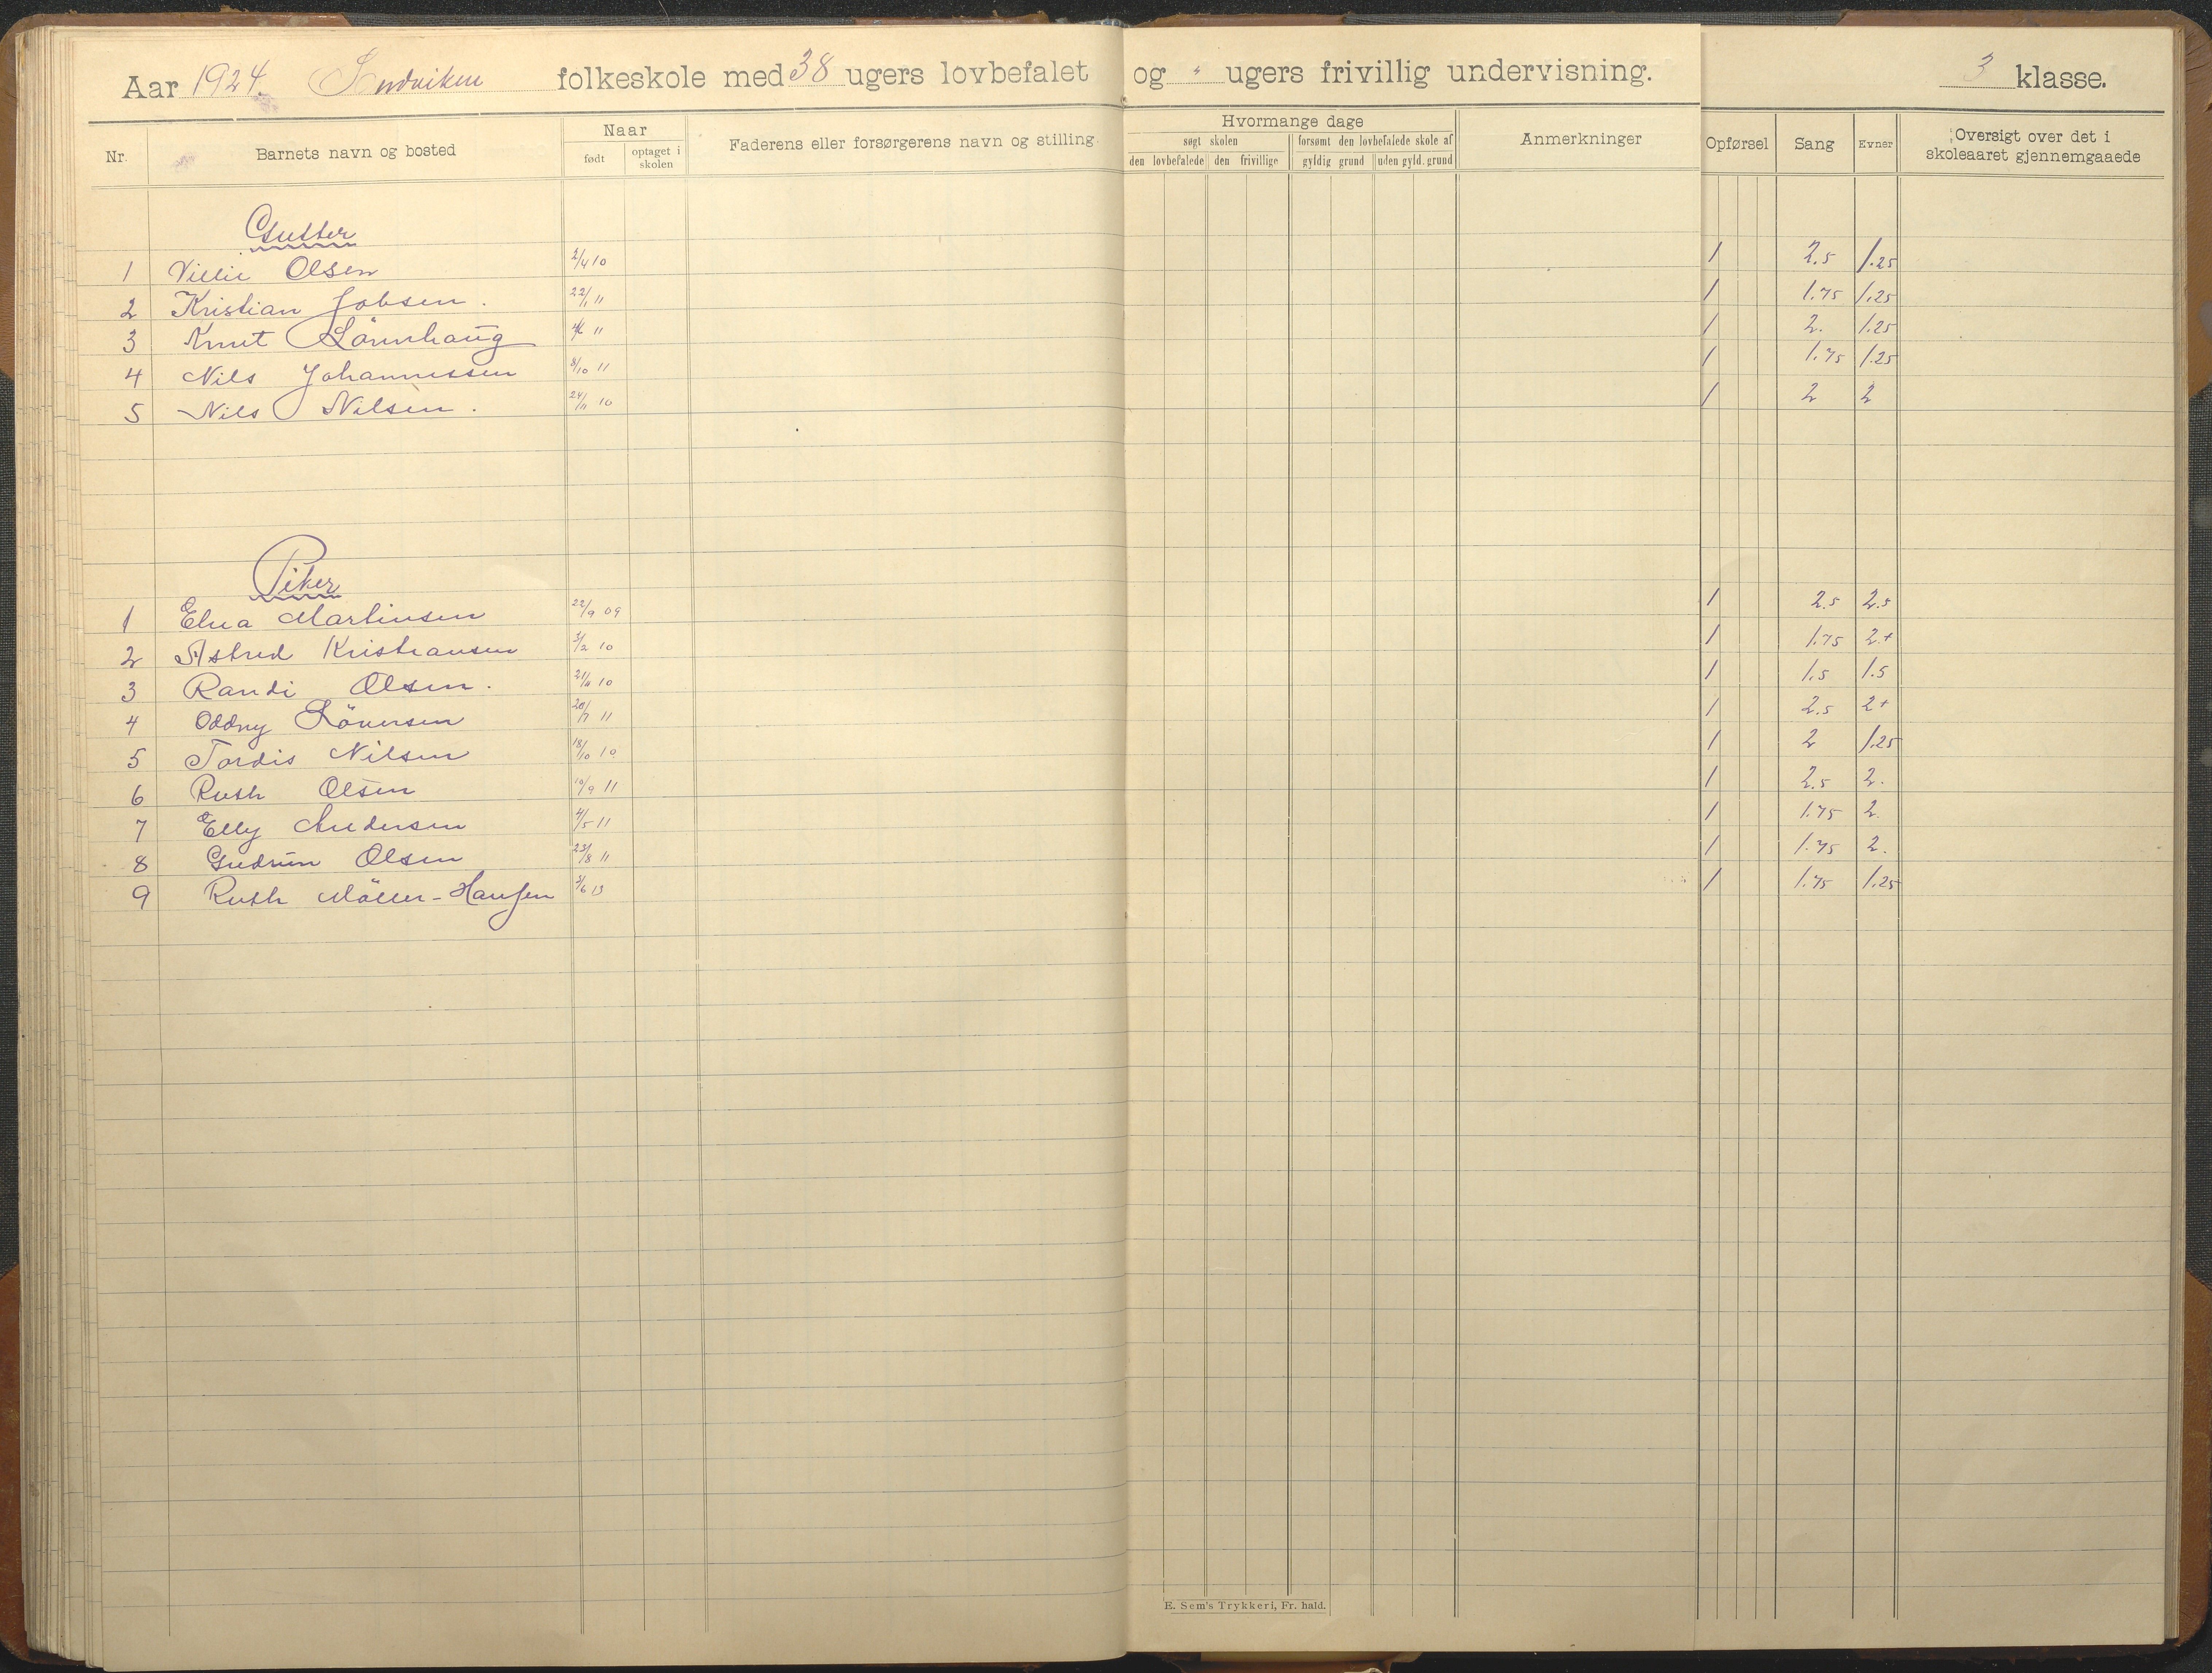 Aar 1924. Sndviken folkeskole med 38 ugers lovbefalet og " ugers frivillig undervisning. 3 klasse.
Nr. Barnets navn og bosted Naar født optaget i skolen Faderens eller forsørgerens navn og stilling Hvormange dage søgt skolen den lovbefalede den frivillige forsømt den lovbefalede skole af gyldig grund uden gyld. grund Anmerkninger Opførsel Sang Evner Oversigt over det i skoleaaret gjennemgaaede
Gutter
1 Villie Olsen 2/4 10 1 2.5 1.25
2 Kristian Jobsen. 22/1 11 1 1.75 1.25
3 Knut Lönnhaug 4/6 11 1 2. 1.25
4 Nils Johannessen 8/10 11 1 1.75 1.25
5 Nils Nilsen. 24/11 10 1 2 2
Piker
1 Elna Martinsen 22/9 09 1 2.5 2.5
2 Astrid Kristiansen 3/2 10 1 1.75 2.+
3 Randi Olsen. 21/11 10 1 1.5 1.5
4 Oddny Sörensen 20/7 11 1 2.5 2+
5 Tordis Nilsen 18/10 10 1 2 1.25
6 Ruth Olsen 10/9 11 1 2.5 2.
7 Elly Andersen 4/5 11 1 1.75 2.
8 Gudrun Olsen 23/8 11 1 1.75 2.
9 Ruth Möller-Hansen 3/6 13 1 1.75 1.25
E. Sem's Trykkeri, Fr. hald.